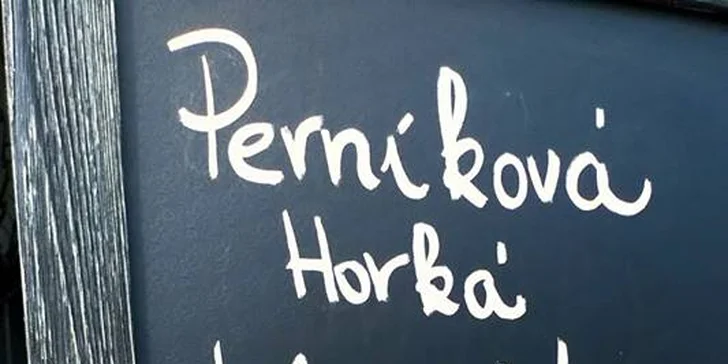 Perníková
Horká